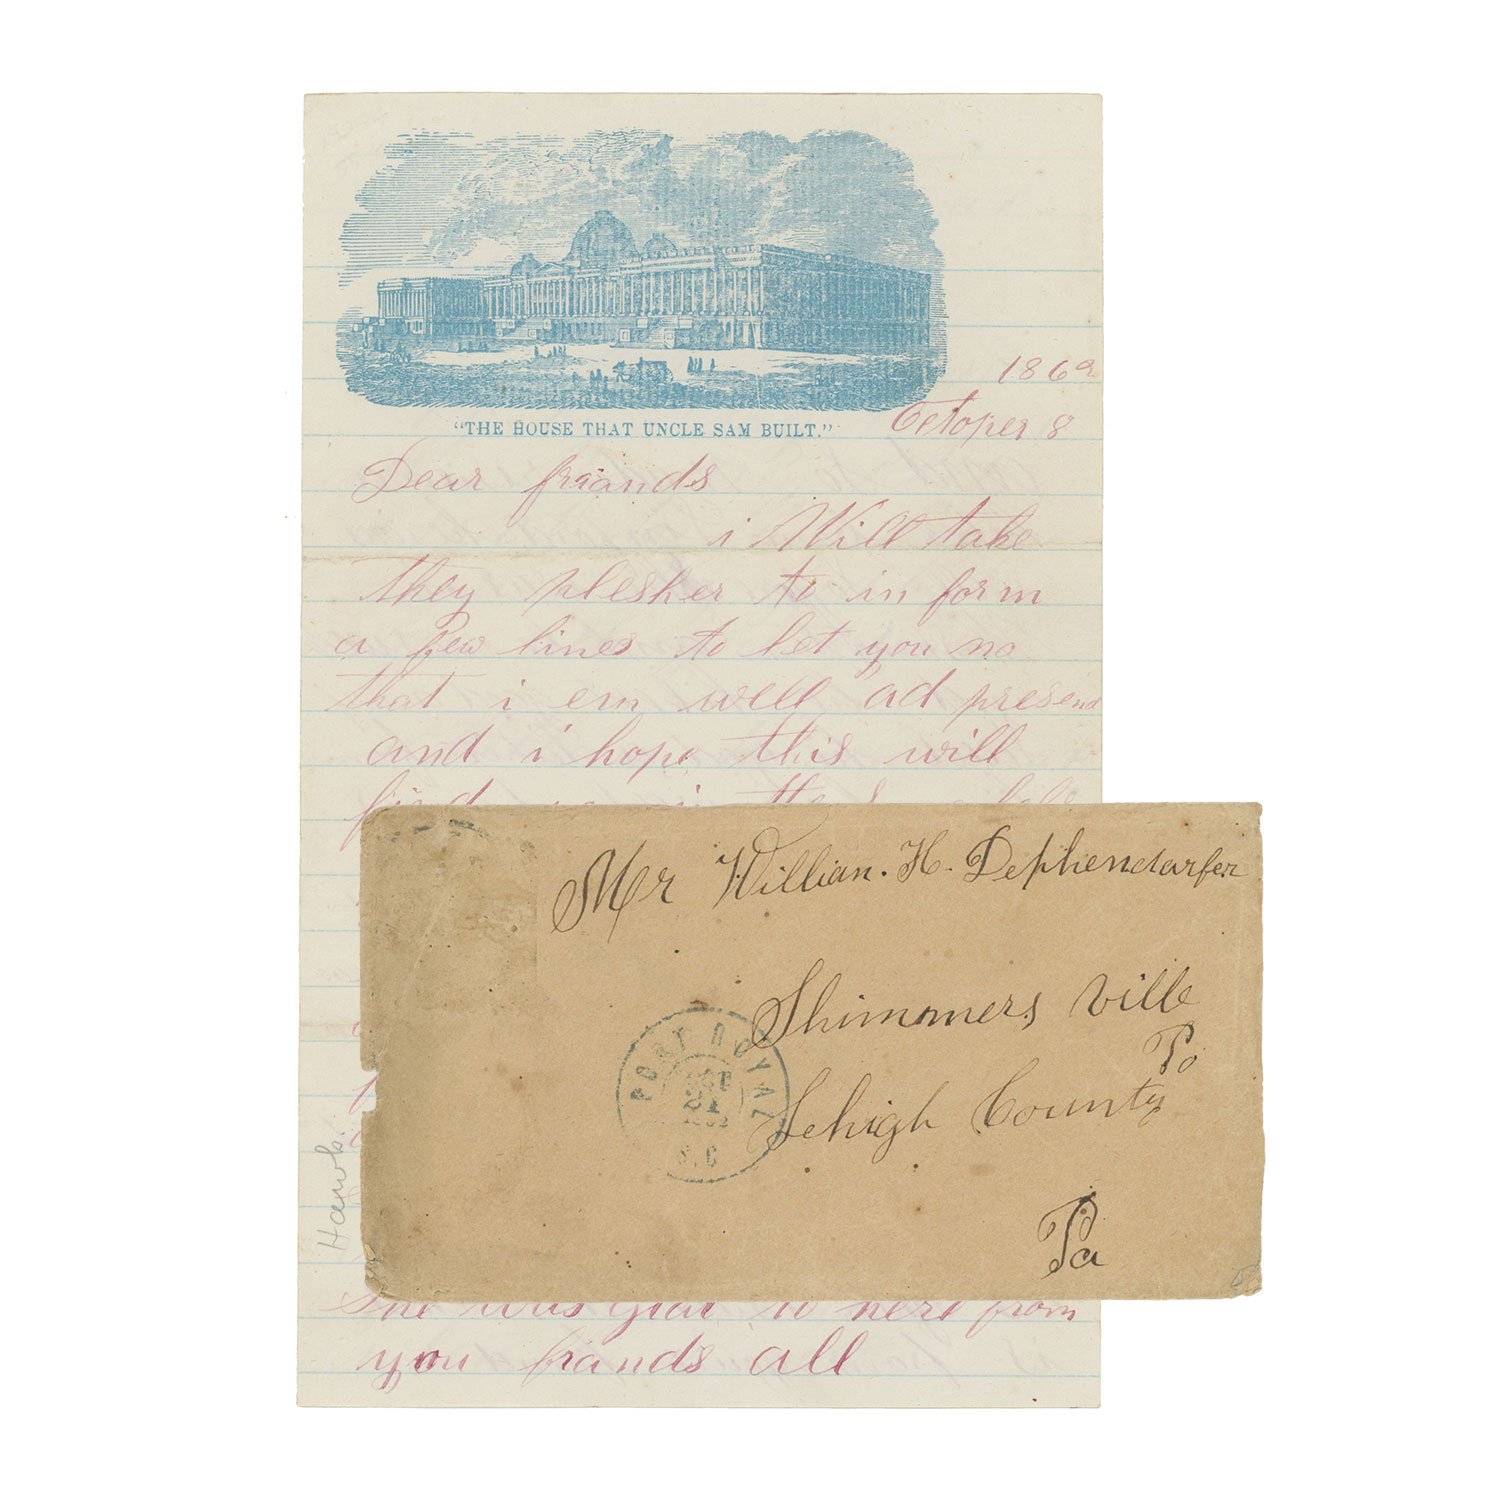 1862
"THE HOUSE THAT UNCLE SAM BUILT."
Octoper 8
Dear friands
i Will take
they plesher to in form
a few lines to let you no
that i em well ad presend
and i hope this will
find
Mr Willian. H. Dephendarfer
Shimmers ville
Po
Lehigh County
Pa
PORT ROYAL
OCT
21
1862
S.C
Hawb.
was glat to hert from
you friands all